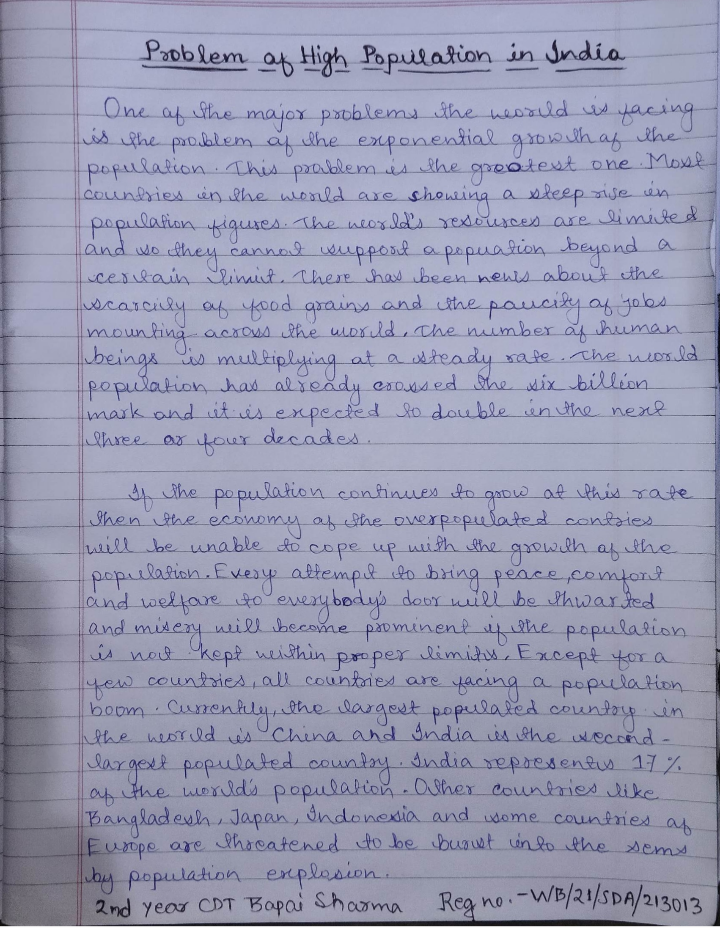 Problem of High Population in India
One of the major problems the world is facing
is the problem of the exponential growth of the
population. This problem is the greatest one. Most
countries in the world are showing a steep rise in
population figures. The world's resources are limited
and so they cannot support a popuation beyond a
certain limit. There has been news about the
scarcity of food grains and the paucity of jobs
mounting across the world. The number of human
beings is multiplying at a steady rate. The world
population has already crossed the six billion
mark and it is expected to double in the next
three or four decades.
If the population continues to grow at this rate
then the economy of the overpopulated contries
will be unable to cope up with the growth of the
population. Every attempt to bring peace, comfort
and welfare to everybody's door will be thwarted
and misery will become prominent if the population
is not kept within proper limits. Except for a
few countries, all countries are facing a population
boom. Currently, the largest populated country in
the world is China and India is the second-
largest populated country. India represents 17%
of the world's population. Other countries like
Bangladesh, Japan, Indonesia and some countries of
Europe are threatened to be burst into the sems
by population explosion.
2nd year CDT Bapai Sharma Reg no.-WB/21/SDA/213013